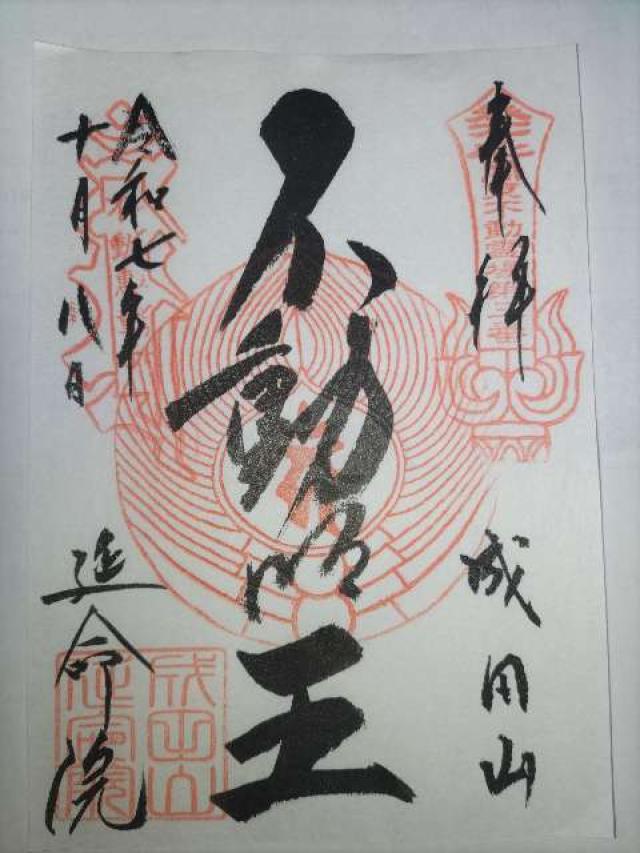 奉拝
成田山
不動明王
令和七年
十月八日
延命院
成田山
延命院